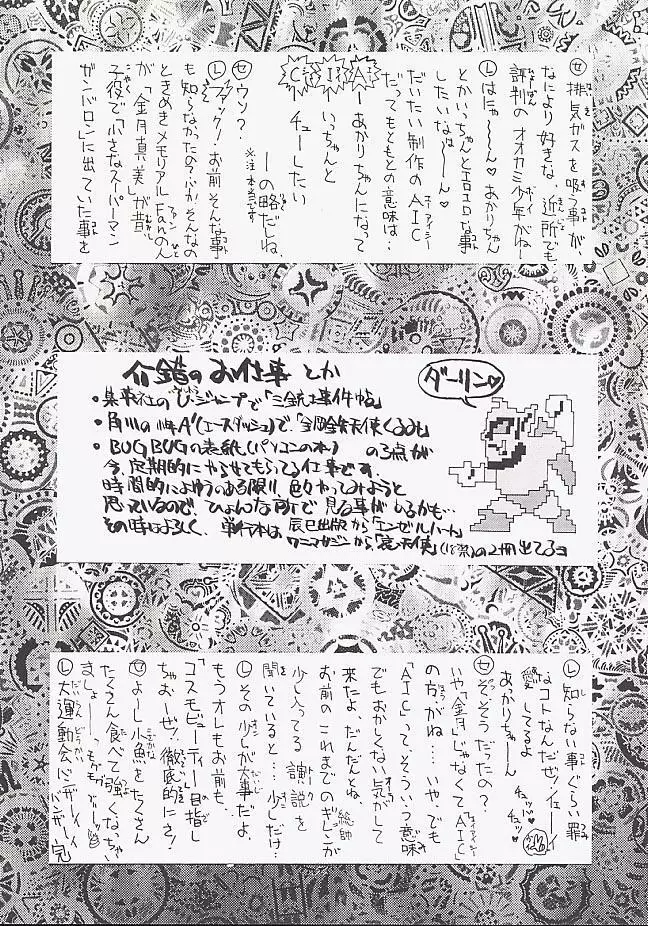 セ 排気ガスを吸う事が、
なにより好きな、近所でも
評判のオオカミ少年がね〜
L はにゃ〜〜ん♡ あかりちゃん
とかいっちゃんとエロエロな事
したいなぁ〜〜ん♡
だいたい制作のAIC
だってもともとの意味は…
A―あかりちゃんになって
I―いっちゃんと
C―チューしたい
―の略だしね、
※注 本当です
セ ウソ?
L ファック! お前そんな事
も知らなかったのか、そんなの
ときめきメモリアルFanのん
が「金月真美」が昔
子役で「小さなスーパーマン
ガンバロン」に出ていた事を
介錯のお仕事とか
・集英社のVジャンプで「三銃士事件帖」
・角川の少年A'(エースダッシュ)で、「全開鉄天使くるみ」
・BUGBUGの表紙(パソコンの本)の3点が
今、定期的にやらせてもらってる仕事です、
時間的によゆうのある限り、色々やってみようと
思っているので、ひょんな所で見る事がしるかも…
その時はよろしく、単行本は辰巳出版から「エンゼルハート」
ワニマガジンから「天使」(18禁)の2冊出てるヨ
ダーリン♡
L 知らない事ぐらい罪
なコトなんだぜッイェーイ
愛してるよ
あっかりちゃーん チュッ♡チュッ♡
セ そ、そうだったの?
いや「金月」じゃなくて「AIC」
の方がね…いや、でも
「AIC」って、そういう意味
でもおかしくない気がして
来たよ、だんだんとね
お前のこれまでのギレン総帥が
少し入ってる演説を
聞いていると…少しだけ…
L その少しが大事だよ、
もうオレもお前も、
「コスモビューティー」目指し
ちゃおーぜ、徹底的にさ!
セ よーし小魚をたくさん
たくさん食べて強くなっちゃい
ましょーーっモグモグ
L 大運動会バンザーイ バンザーイ 完